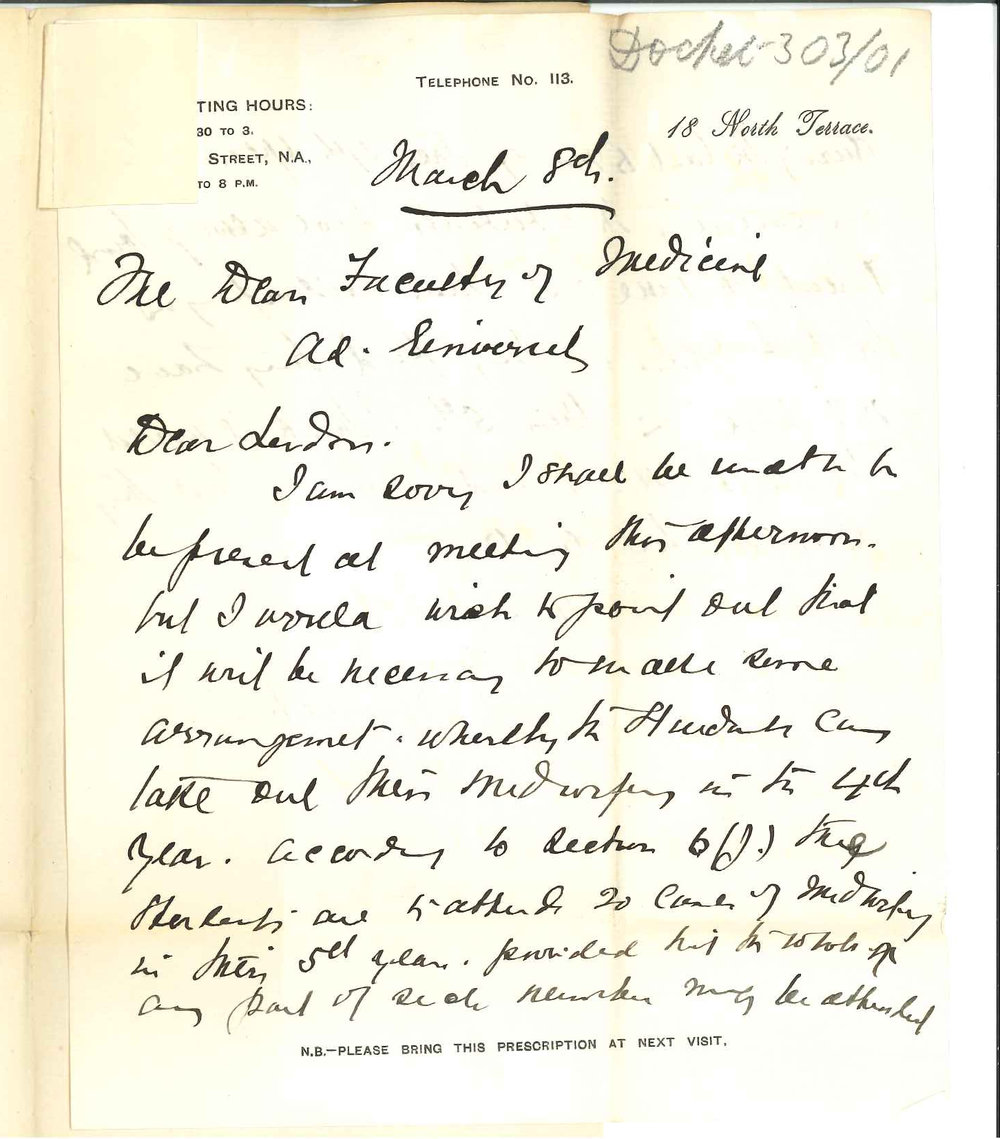 Docket 303/01
TELEPHONE NO. 113.
TING HOURS:
30 TO 3.
STREET, N.A.,
TO 8 P.M.
18 North Terrace.
March 8th.
The Dean Faculty of Medicine
Ad. University
Dear Lendon.
I am sorry I shall be unable to
be present at meeting this afternoon.
but I would wish to point out that
it will be necessary to make some
arrangement. whereby the Students can
take out their Midwifery in the 4th
year. According to section 6(J.) the
Students are to attend 20 cases of Midwifery
in their 5th year. provided that the whole or
any part of such number may be attended
N.B.—PLEASE BRING THIS PRESCRIPTION AT NEXT VISIT.